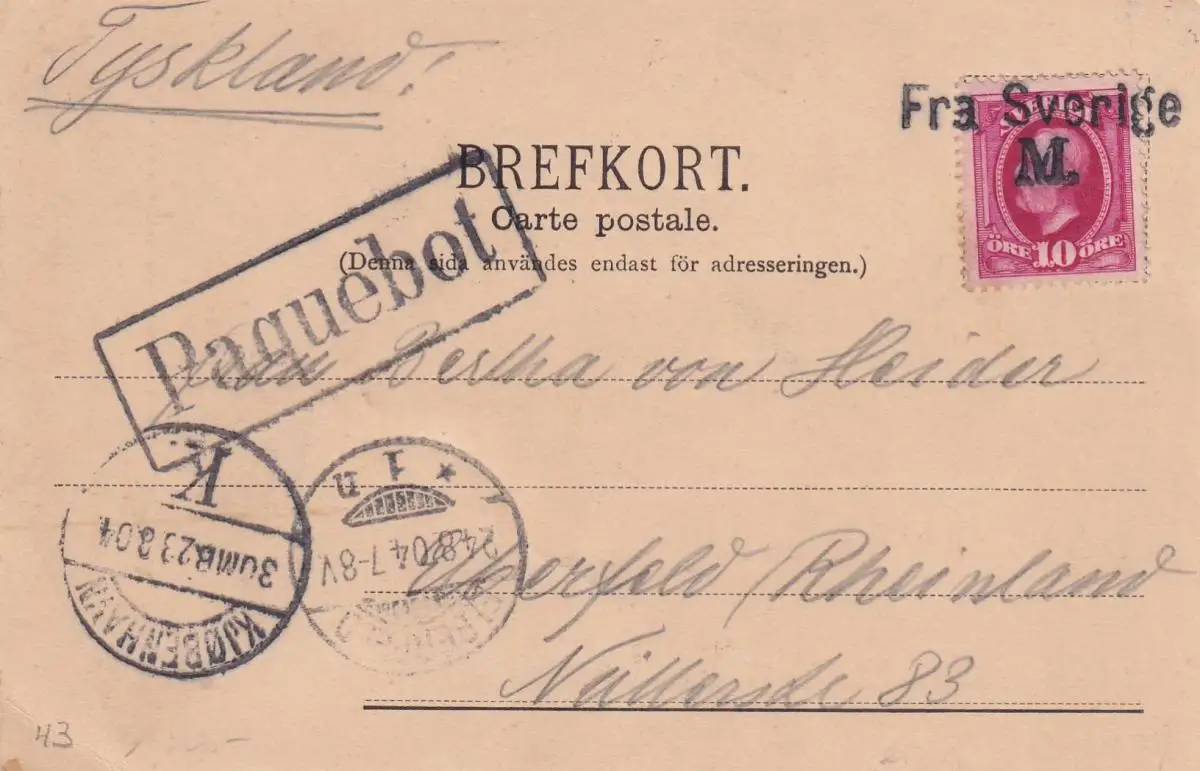 Tyskland!
Fra Sverige
M.
ÖRE 10 ÖRE
BREFKORT.
Carte postale.
(Denna sida användes endast för adresseringen.)
Paquebot
Bertha von Heider
K
3 OMB. 23 8 04
KJØBENHAVN
* 1 n
24.8.04.7-8V
Elberfeld Rheinland
Nüllerstr 83
43